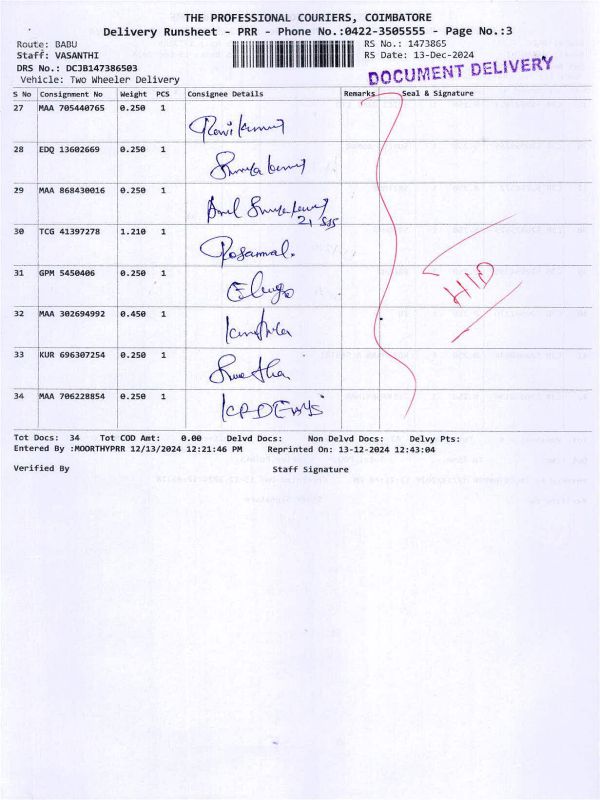 THE PROFESSIONAL COURIERS, COIMBATORE
Delivery Runsheet - PRR - Phone No.:0422-3505555 - Page No.:3
Route: BABU RS No.: 1473865
Staff: VASANTHI RS Date: 13-Dec-2024
DRS No.: DCJB147386503
Vehicle: Two Wheeler Delivery
DOCUMENT DELIVERY
S No Consignment No Weight PCS Consignee Details Remarks Seal & Signature
27 MAA 705440765 0.250 1 Ravikumar
28 EDQ 13602669 0.250 1
29 MAA 868430016 0.250 1
30 TCG 41397278 1.210 1 Rosammal.
31 GPM 5450406 0.250 1
32 MAA 302694992 0.450 1
33 KUR 696307254 0.250 1 Swetha
34 MAA 706228854 0.250 1
H/D
Tot Docs: 34 Tot COD Amt: 0.00 Delvd Docs: Non Delvd Docs: Delvy Pts:
Entered By :MOORTHYPRR 12/13/2024 12:21:46 PM Reprinted On: 13-12-2024 12:43:04
Verified By Staff Signature